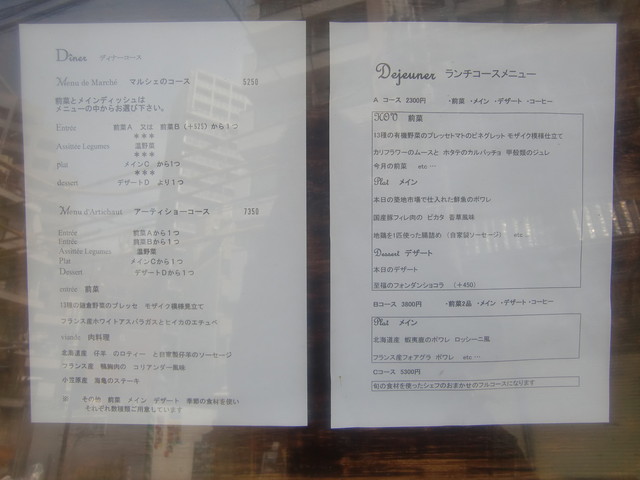 Dîner ディナーコース
Menu de Marché マルシェのコース 5250
前菜とメインディッシュは
メニューの中からお選び下さい。
Entrée 前菜A 又は 前菜B(+525)から1つ
***
Assiette Legumes 温野菜
***
plat メインC から1つ
***
dessert デザートD より1つ
Menu d'Artichaut アーティショーコース 7350
Entrée 前菜Aから1つ
Entrée 前菜Bから1つ
Assiette Legumes 温野菜
Plat メインCから1つ
Dessert デザートDから1つ
entrée 前菜
13種の鎌倉野菜のプレッセ モザイク模様見立て
フランス産ホワイトアスパラガスとヒイカのエチュベ
viande 肉料理
北海道産 仔羊 のロティー と自家製仔羊のソーセージ
フランス産 鴨胸肉の コリアンダー風味
小笠原産 海亀のステーキ
※ その他 前菜 メイン デザート 季節の食材を使い
それぞれ数種類ご用意しています
Dejeuner ランチコースメニュー
A コース 2300円 ・前菜 ・メイン ・デザート ・コーヒー
前菜
13種の有機野菜のプレッセトマトのビネグレット モザイク模様仕立て
カリフラワーのムースと ホタテのカルパッチョ 甲殻類のジュレ
今月の前菜 etc…
Plat メイン
本日の築地市場で仕入れた鮮魚のポワレ
国産豚フィレ肉の ピカタ 香草風味
地鶏を1匹使った腸詰め (自家詰ソーセージ) etc…
Dessert デザート
本日のデザート
至福のフォンダンショコラ (+450)
Bコース 3800円 ・前菜2品 ・メイン ・デザート ・コーヒー
Plat メイン
北海道産 蝦夷鹿のポワレ ロッシーニ風
フランス産フォアグラ ポワレ etc…
Cコース 5300円
旬の食材を使ったシェフのおまかせのフルコースになります